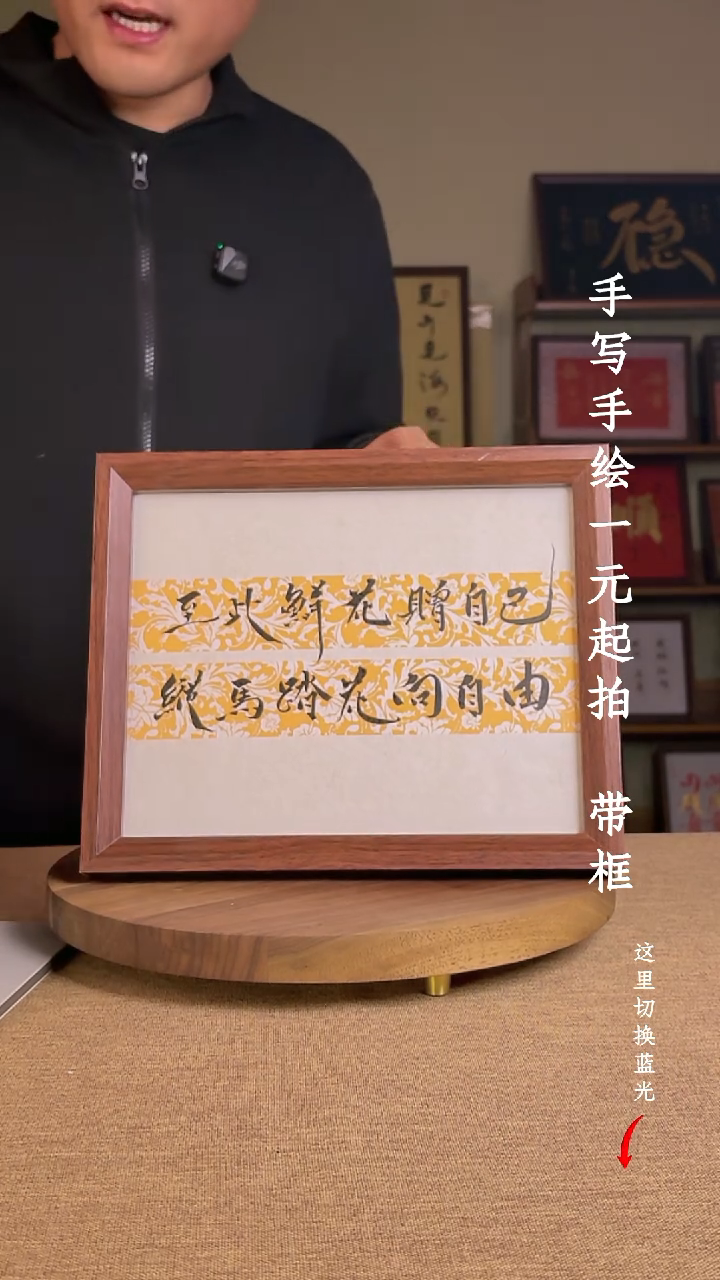 至此鮮花贈自己
縱馬踏花向自由
手写手绘一元起拍 带框
这里切换蓝光
稳
順